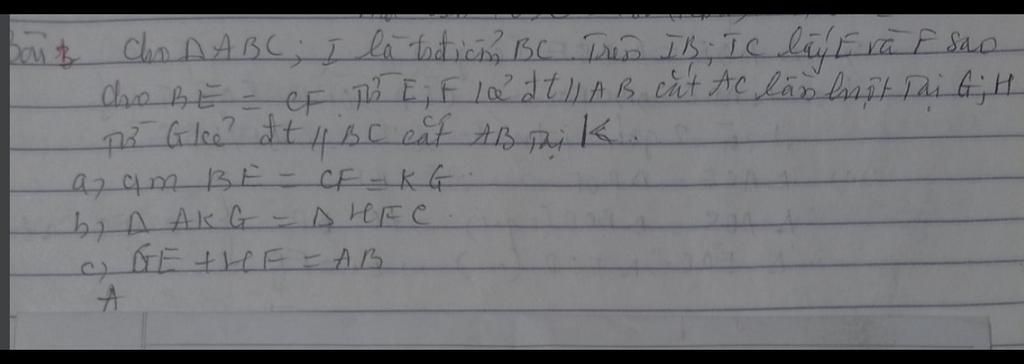 Bài 2 Cho ΔABC; I là tđiểm BC. Trên IB; IC lấy E và F sao
cho BE = CF Từ E; F kẻ đt // AB cắt AC lần lượt tại G; H
Từ G kẻ đt // BC cắt AB tại K.
a, cm BE = CF = KG.
b, Δ AKG = Δ HFC.
c, GE + HF = AB
A